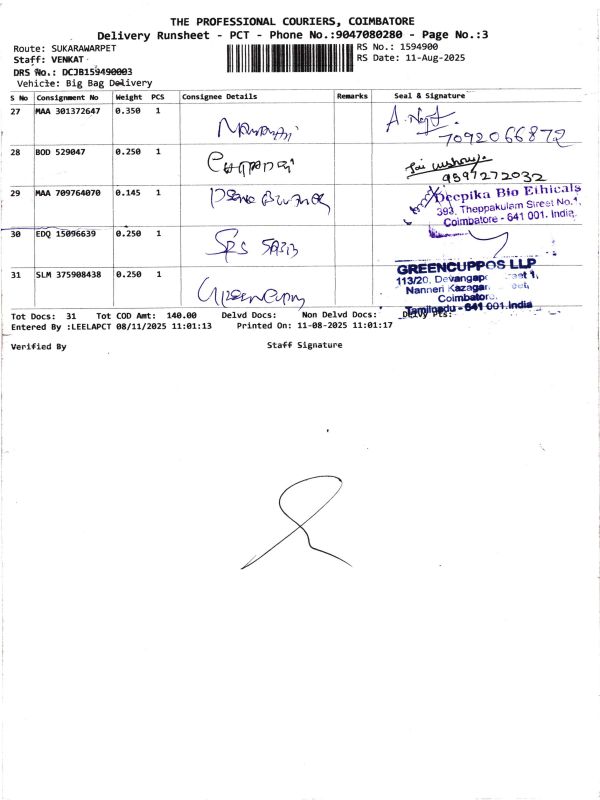 THE PROFESSIONAL COURIERS, COIMBATORE
Delivery Runsheet - PCT - Phone No.:9047080280 - Page No.:3
Route: SUKARAWARPET
RS No.: 1594900
Staff: VENKAT
RS Date: 11-Aug-2025
DRS No.: DCJB159490003
Vehicle: Big Bag Delivery
S No Consignment No Weight PCS Consignee Details Remarks Seal & Signature
27 MAA 301372647 0.350 1
7092066872
28 BOD 529047 0.250 1
9597272032
29 MAA 709764070 0.145 1
Deepika Bio Ethicals
393, Theppakulam Street No.
Coimbatore - 641 001. India.
30 EDQ 15096639 0.250 1 SPS
31 SLM 375908438 0.250 1
GREENCUPPOS LLP
113/20, Devangape
Nanneri Kazagam
Coimbatore.
Tamilnadu - 641 001.India
Tot Docs: 31 Tot COD Amt: 140.00 Delvd Docs: Non Delvd Docs: Delvy Pts:
Entered By :LEELAPCT 08/11/2025 11:01:13 Printed On: 11-08-2025 11:01:17
Verified By Staff Signature